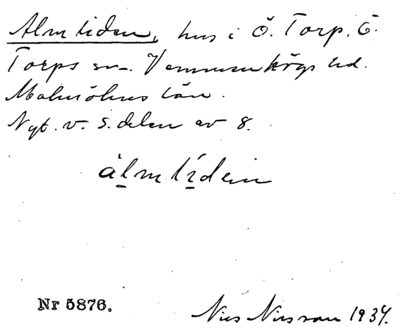 Almliden, hus i Ö. Torp. Ö.
Torps sn. Vemmenhögs hd.
Malmöhus län.
Nyb. v. s. delen av 8.
àlmlídein
Nr 5876.
Nils Nilsson 1934.